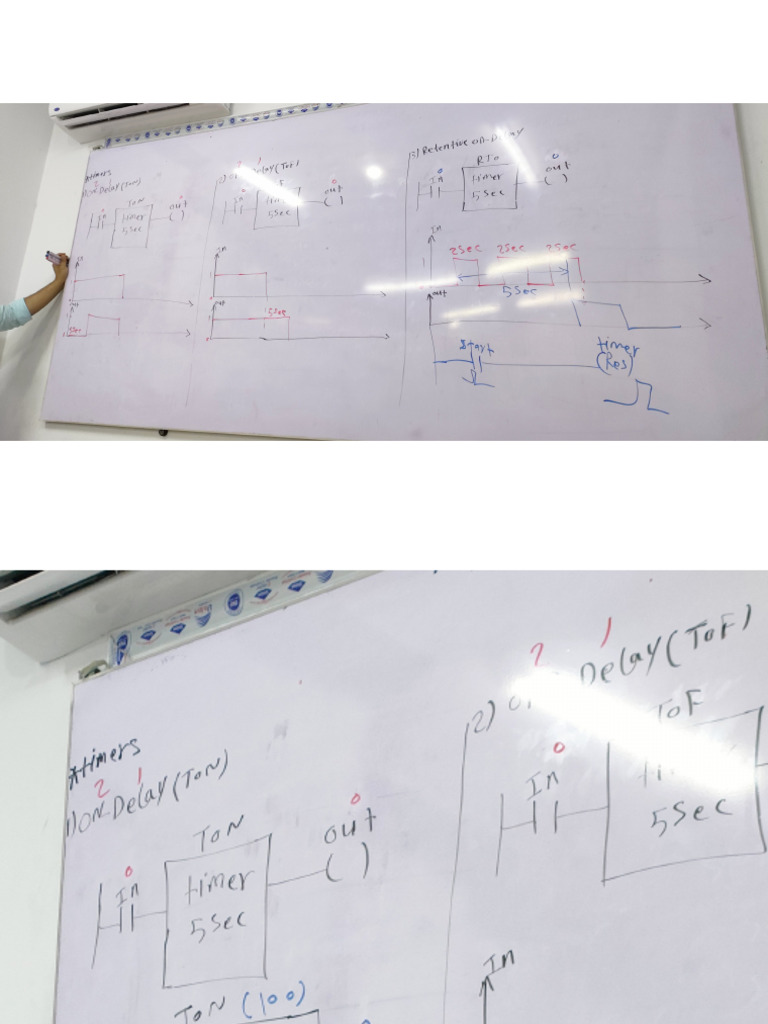 *timers
1) ON-Delay (TON)
In
0
TON
timer
5sec
out
0
In
1
out
5sec
Delay (TOF)
In
0
5sec
out
0
In
1
out
5sec
3) Retentive on-Delay
RTO
In
0
timer
5sec
out
0
In
2sec 2sec 2sec
1
5sec
out
start
timer
(Res)
*timers
2 1
1) ON-Delay (TON)
0
In
TON
timer
5sec
0
out
( )
TON (100)
2 1
2) Delay (TOF)
TOF
0
In
5sec
In